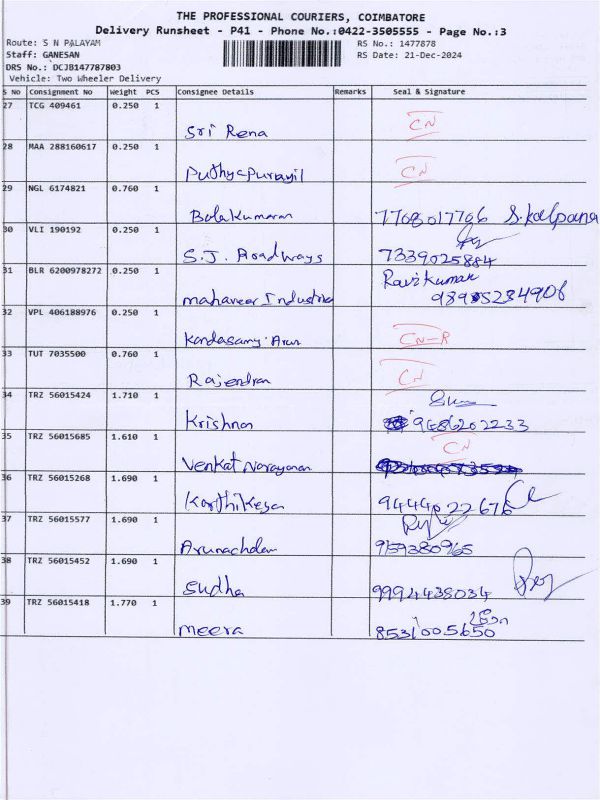 THE PROFESSIONAL COURIERS, COIMBATORE
Delivery Runsheet - P41 - Phone No.:0422-3505555 - Page No.:3
Route: S N PALAYAM RS No.: 1477878
Staff: GANESAN RS Date: 21-Dec-2024
DRS No.: DCJB147787803
Vehicle: Two Wheeler Delivery
S No Consignment No Weight PCS Consignee Details Remarks Seal & Signature
27 TCG 409461 0.250 1
Sri Rena CN
28 MAA 288160617 0.250 1
Puthyapurayil CN
29 NGL 6174821 0.760 1
Balakumaran 7708017706 S.kalpana
30 VLI 190192 0.250 1
S.J. Roadways 7339025884
31 BLR 6200978272 0.250 1 Ravikumar
mahaveer Industries
32 VPL 406188976 0.250 1
Kandasamy. Arun CN-R
33 TUT 7035500 0.760 1
Rajendran CN
34 TRZ 56015424 1.710 1
Krishnan
35 TRZ 56015685 1.610 1 CN
Venkat Narayanan
36 TRZ 56015268 1.690 1
Karthikeyan 9444022676
37 TRZ 56015577 1.690 1
Arunachalam 959380965
38 TRZ 56015452 1.690 1
Sudha 9994438034
39 TRZ 56015418 1.770 1
meera 8531005650